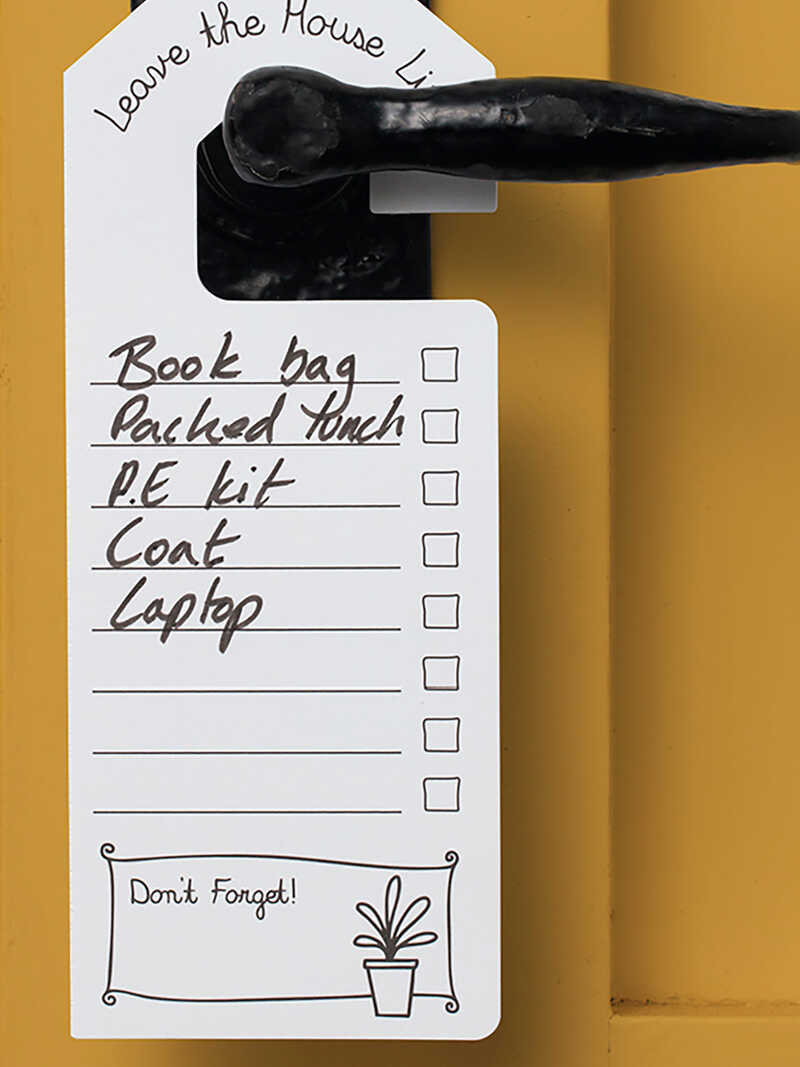 Leave the House
Book bag
Packed lunch
P.E kit
Coat
Laptop
Don't Forget!